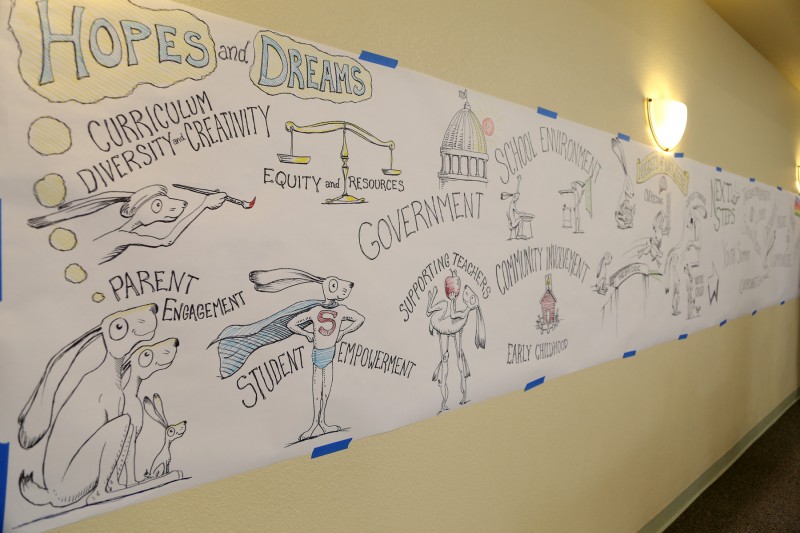 HOPES and DREAMS
CURRICULUM
DIVERSITY and CREATIVITY
EQUITY and RESOURCES
GOVERNMENT
SCHOOL ENVIRONMENT
PARENT
ENGAGEMENT
S
STUDENT EMPOWERMENT
SUPPORTING TEACHERS
COMMUNITY INVOLVEMENT
EARLY CHILDHOOD
NEXT
STEPS